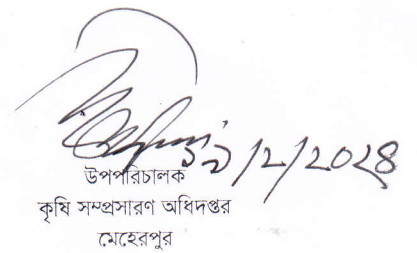 ১৯/২/২০২৪
উপপরিচালক
কৃষি সম্প্রসারণ অধিদপ্তর
মেহেরপুর